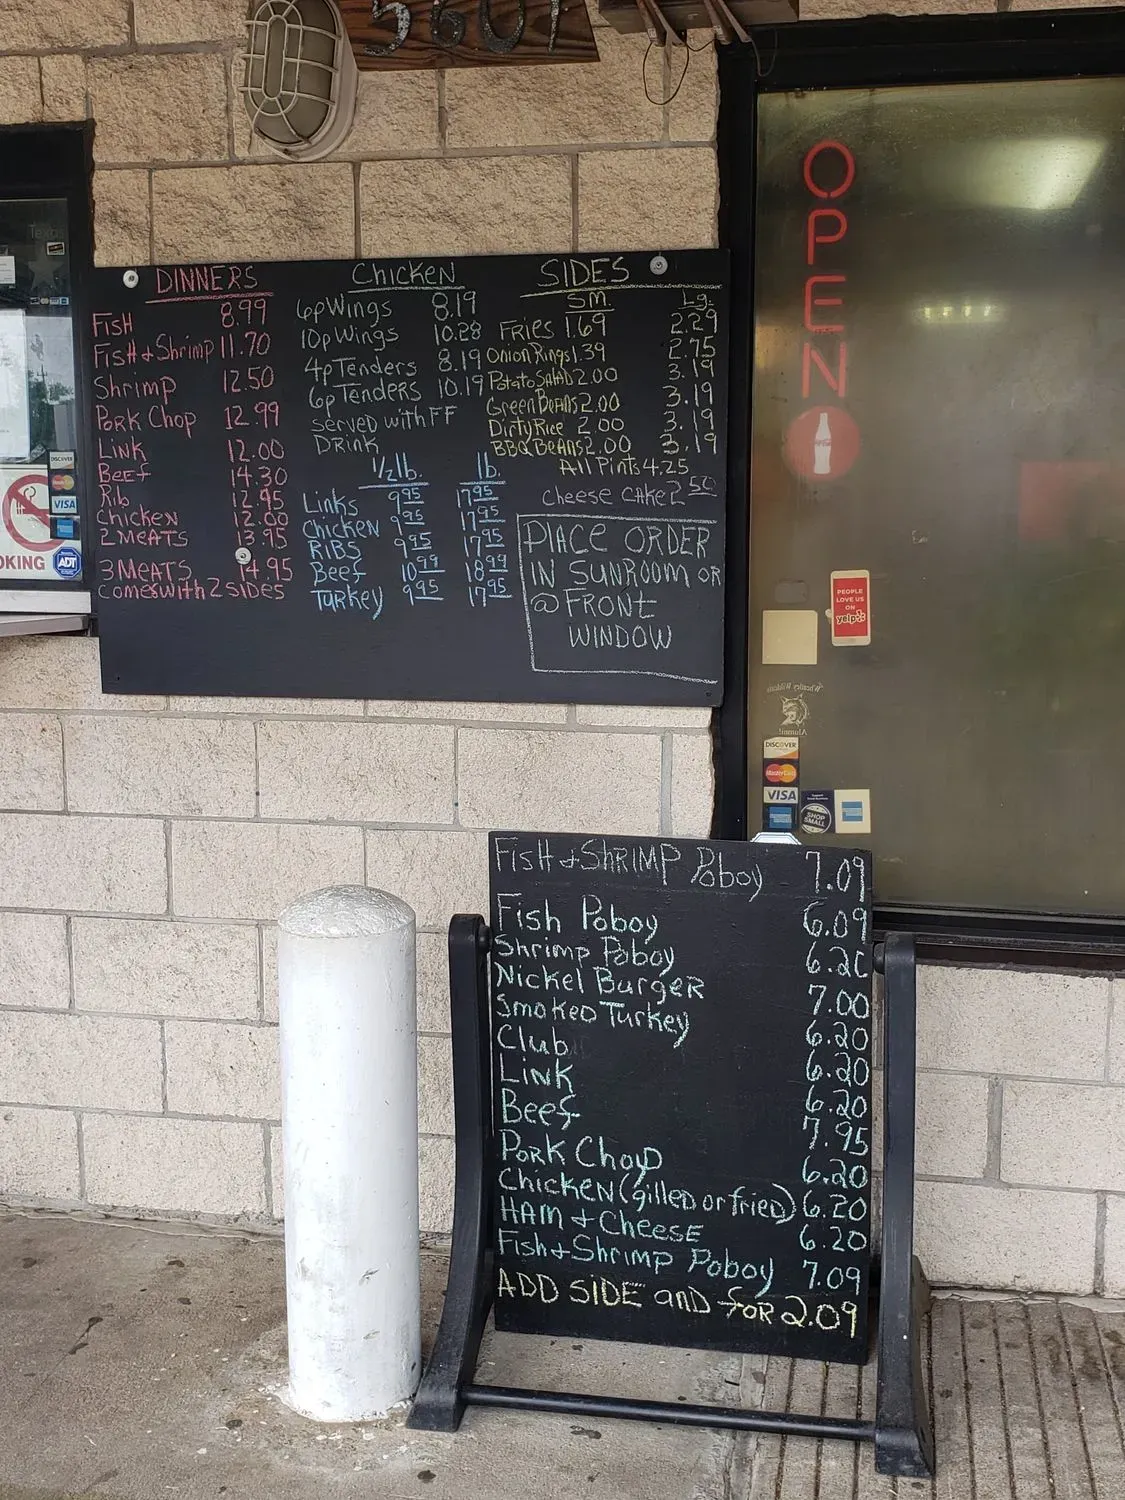 5601
Texas
DISCOVER
VISA
OKING
ADT
DINNERS
Fish 8.99
Fish + Shrimp 11.70
Shrimp 12.50
Pork Chop 12.99
Link 12.00
Beef 14.30
Rib 12.95
Chicken 12.00
2 Meats 13.95
3 Meats 14.95
comes with 2 sides
Chicken
6p Wings 8.19
10p Wings 10.28
4p Tenders 8.19
6p Tenders 10.19
served with FF
Drink
1/2 lb. lb.
Links 9 95 17 95
Chicken 9 95 17 95
Ribs 9 95 17 95
Beef 10 99 18 99
Turkey 9 95 17 95
SIDES
Sm. Lg.
Fries 1.69 2.29
Onion Rings 1.39 2.75
Potato Salad 2.00 3.19
Green Beans 2.00 3.19
Dirty Rice 2.00 3.19
BBQ Beans 2.00 3.19
All Pints 4.25
Cheese Cake 2 50
PlACE ORDER
IN SUNROOM OR
@ FRONT
WINDOW
OPEN
PEOPLE
LOVE US
ON
yelp
Wheatley Wildcats
Alumni
DISCOVER
MasterCard
VISA
SHOP
SMALL
Fish + SHRIMP Poboy 7.09
Fish Poboy 6.09
Shrimp Poboy 6.20
Nickel Burger 7.00
Smoked Turkey 6.20
Club 6.20
Link 6.20
Beef 7.95
Pork Chop 6.20
Chicken (gilled or fried) 6.20
Ham + Cheese 6.20
Fish + Shrimp Poboy 7.09
ADD SIDE and for 2.09